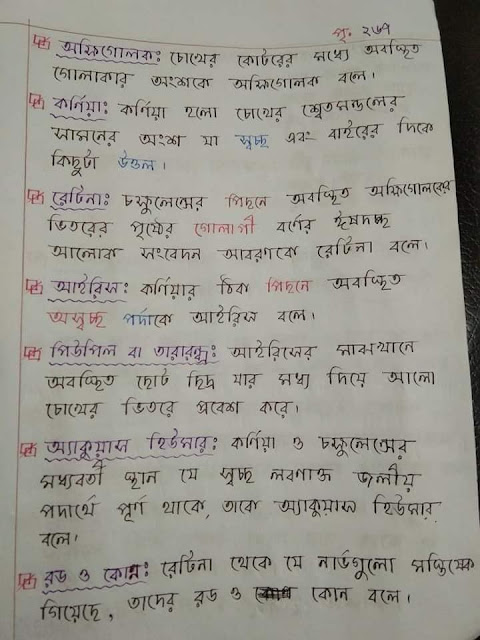 পৃ: ২৬৭
অক্ষিগোলক: চোখের কোটরের মধ্যে অবস্থিত
গোলাকার অংশকে অক্ষিগোলক বলে।
কর্ণিয়া: কর্ণিয়া হলো চোখের শ্বেতমন্ডলের
সামনের অংশ যা স্বচ্ছ এবং বাইরের দিকে
কিছুটা উত্তল।
রেটিনা: চক্ষুলেন্সের পিছনে অবস্থিত অক্ষিগোলকের
ভিতরের পৃষ্ঠের গোলাপী বর্ণের ঈষদচ্ছ
আলোক সংবেদন আবরণকে রেটিনা বলে।
আইরিস: কর্ণিয়ার ঠিক পিছনে অবস্থিত
অস্বচ্ছ পর্দাকে আইরিস বলে।
পিউপিল বা তারারন্ধ্র: আইরিসের মাঝখানে
অবস্থিত ছোট ছিদ্র যার মধ্য দিয়ে আলো
চোখের ভিতরে প্রবেশ করে।
অ্যাকুয়াস হিউমার: কর্ণিয়া ও চক্ষুলেন্সের
মধ্যবর্তী স্থান যে স্বচ্ছ লবণাক্ত জলীয়
পদার্থে পূর্ণ থাকে, তাকে অ্যাকুয়াস হিউমার
বলে।
রড ও কোন: রেটিনা থেকে যে নার্ভগুলো মস্তিষ্কে
গিয়েছে, তাদের রড ও কোন বলে।